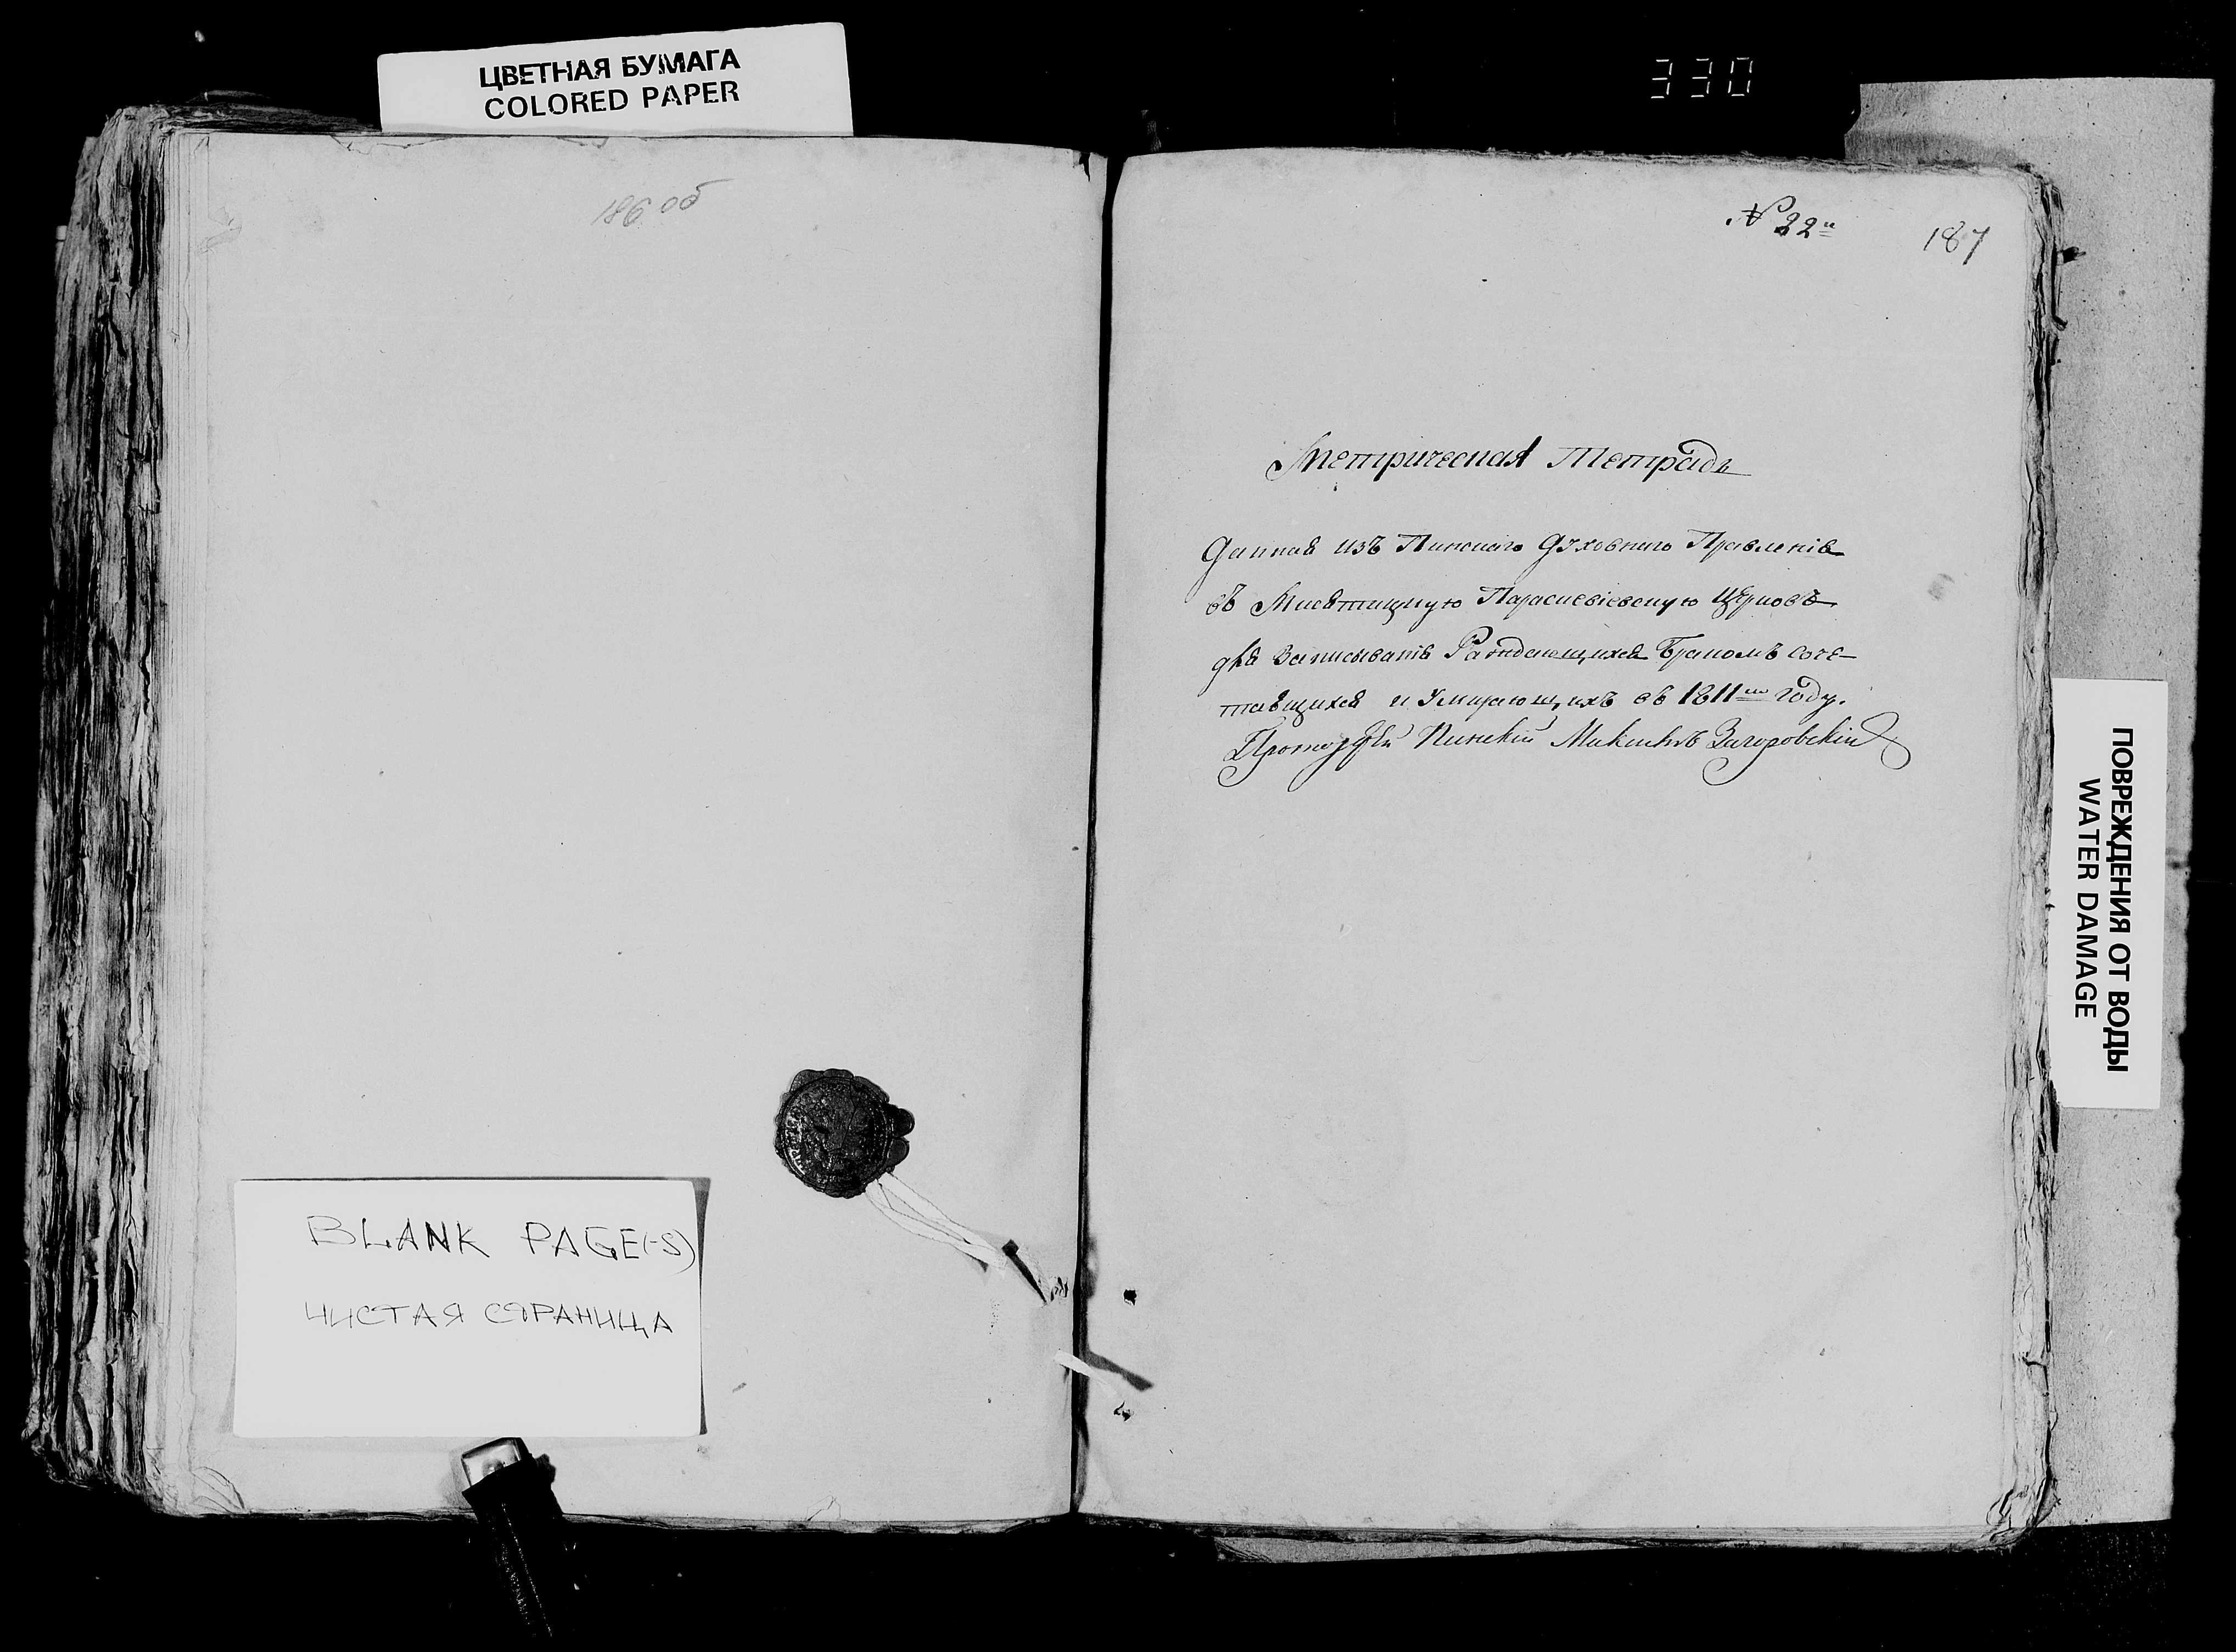 ЦВЕТНАЯ БУМАГА
COLORED PAPER
330
186 об
№ 22й
187
Метрическая Тетрадь
Данная изъ Пинскаго Духовнаго Правленія
въ Мясятицкую Параскевіевскую Церковь
для Записыванія Раждающихся Бракомъ соче-
тавшихся и Умирающихъ въ 1811м году.
Протоіерей Пинскій Загоровскій
BLANK PAGE(-S)
ЧИСТАЯ СТРАНИЦА
ПОВРЕЖДЕНИЯ ОТ ВОДЫ
WATER DAMAGE